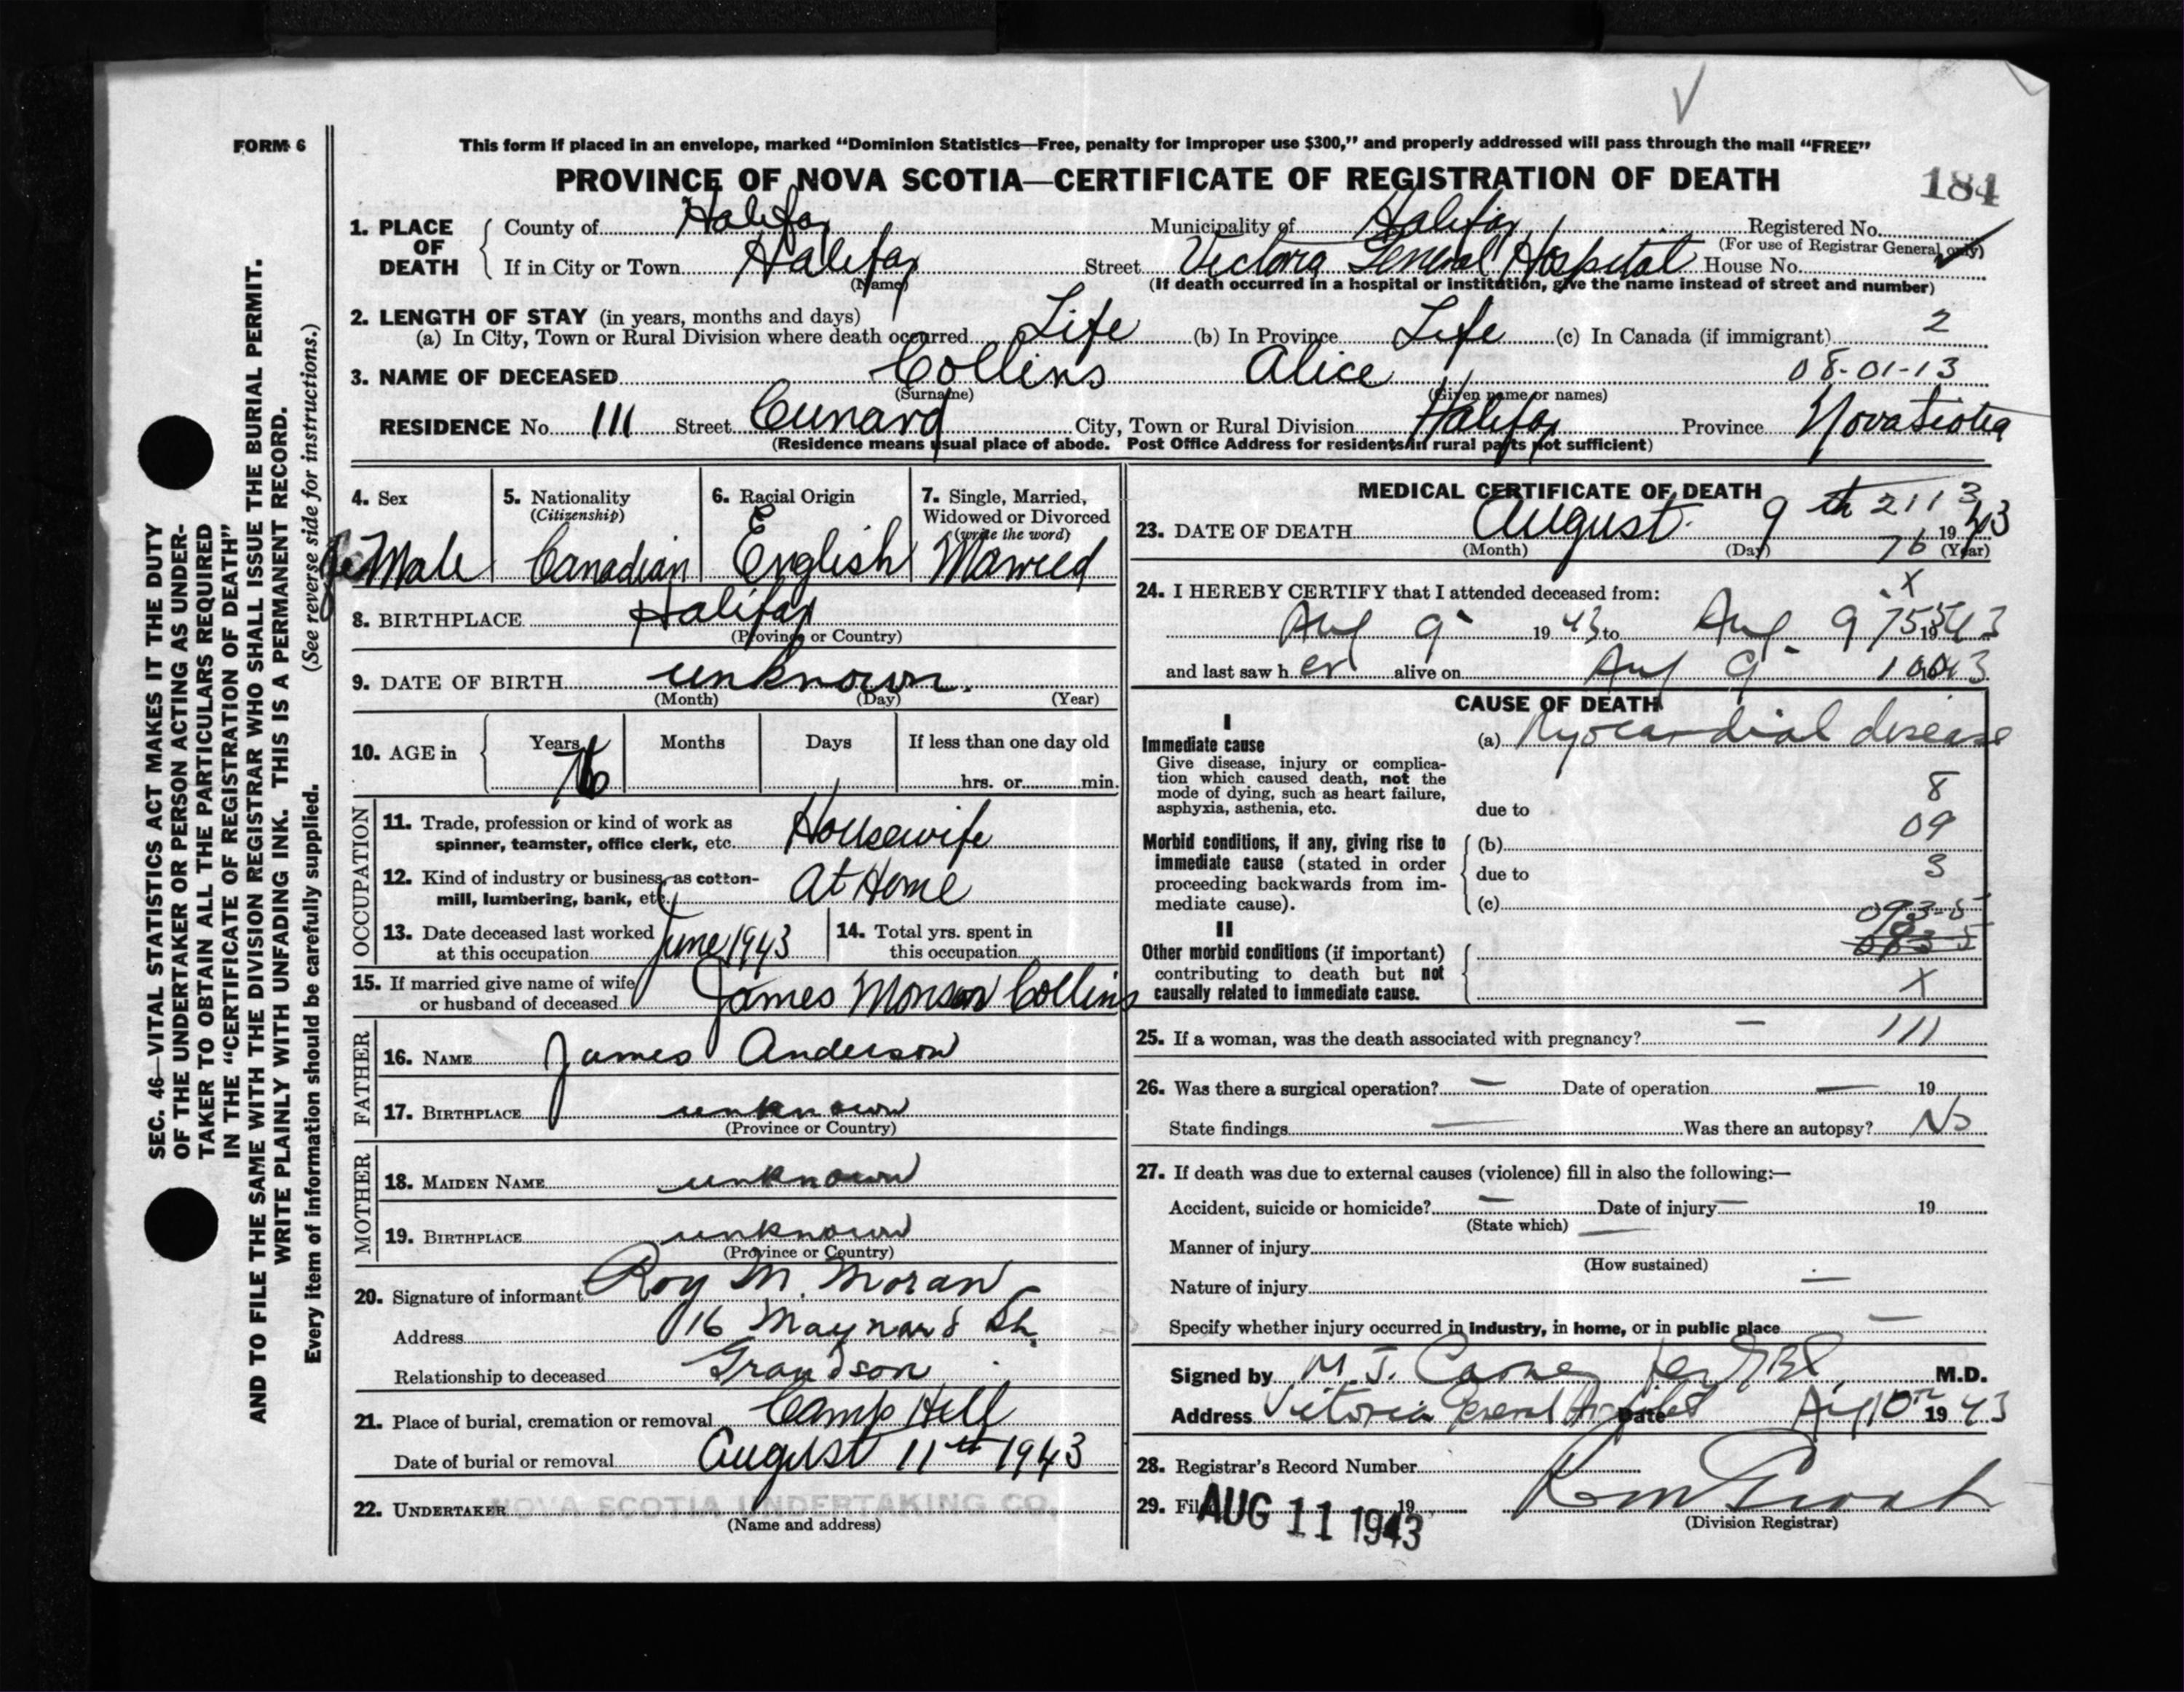 FORM 6
This form if placed in an envelope, marked "Dominion Statistics—Free, penalty for improper use $300," and properly addressed will pass through the mail "FREE"
PROVINCE OF NOVA SCOTIA—CERTIFICATE OF REGISTRATION OF DEATH
184
1. PLACE OF DEATH
County of Halifax Municipality of Halifax Registered No.
(For use of Registrar General only)
If in City or Town Halifax Street Victoria General Hospital House No.
(Name) (If death occurred in a hospital or institution, give the name instead of street and number)
2. LENGTH OF STAY (in years, months and days)
(a) In City, Town or Rural Division where death occurred Life (b) In Province Life (c) In Canada (if immigrant) 2
3. NAME OF DECEASED Collins Alice 08-01-13
(Surname) (Given name or names)
RESIDENCE No. 111 Street Cunard City, Town or Rural Division Halifax Province Nova Scotia
(Residence means usual place of abode. Post Office Address for residents in rural parts not sufficient)
4. Sex
feMale
5. Nationality
(Citizenship)
Canadian
6. Racial Origin
English
7. Single, Married,
Widowed or Divorced
(write the word)
Married
8. BIRTHPLACE Halifax
(Province or Country)
9. DATE OF BIRTH unknown.
(Month) (Day) (Year)
10. AGE in
Years Months Days If less than one day old
76 hrs. or min.
OCCUPATION
11. Trade, profession or kind of work as
spinner, teamster, office clerk, etc. Housewife
12. Kind of industry or business, as cotton-
mill, lumbering, bank, etc. At Home
13. Date deceased last worked
at this occupation June 1943
14. Total yrs. spent in
this occupation
15. If married give name of wife
or husband of deceased James Collins
FATHER
16. NAME James Anderson
17. BIRTHPLACE unknown
(Province or Country)
MOTHER
18. MAIDEN NAME unknown
19. BIRTHPLACE unknown
(Province or Country)
20. Signature of informant Roy M. Moran
Address 16 Maynard St.
Relationship to deceased Grandson
21. Place of burial, cremation or removal Camp Hill
Date of burial or removal August 11th 1943
22. UNDERTAKER NOVA SCOTIA UNDERTAKING CO.
(Name and address)
MEDICAL CERTIFICATE OF DEATH
2113
23. DATE OF DEATH August 9th 1943
(Month) (Day) (Year)
76
24. I HEREBY CERTIFY that I attended deceased from:
X
Aug 9 1943 to Aug 9 1943
and last saw her alive on Aug 9 1943
CAUSE OF DEATH
I
Immediate cause
Give disease, injury or complica-
tion which caused death, not the
mode of dying, such as heart failure,
asphyxia, asthenia, etc.
(a) Myocardial disease
8
due to
09
Morbid conditions, if any, giving rise to
immediate cause (stated in order
proceeding backwards from im-
mediate cause).
(b)
due to
3
(c)
093-5
II
Other morbid conditions (if important)
contributing to death but not
causally related to immediate cause.
X
25. If a woman, was the death associated with pregnancy? — 111
26. Was there a surgical operation? — Date of operation — 19
State findings — Was there an autopsy? No
27. If death was due to external causes (violence) fill in also the following:—
Accident, suicide or homicide? — Date of injury — 19
(State which)
Manner of injury —
(How sustained)
Nature of injury —
Specify whether injury occurred in industry, in home, or in public place —
Signed by M. J. M.D.
Address Victoria General Hospital Date Aug 10th 1943
28. Registrar's Record Number
29. Filed AUG 11 1943 19
(Division Registrar)
SEC. 46—VITAL STATISTICS ACT MAKES IT THE DUTY
OF THE UNDERTAKER OR PERSON ACTING AS UNDER-
TAKER TO OBTAIN ALL THE PARTICULARS REQUIRED
IN THE "CERTIFICATE OF REGISTRATION OF DEATH"
AND TO FILE THE SAME WITH THE DIVISION REGISTRAR WHO SHALL ISSUE THE BURIAL PERMIT.
WRITE PLAINLY WITH UNFADING INK. THIS IS A PERMANENT RECORD.
Every item of information should be carefully supplied. (See reverse side for instructions.)